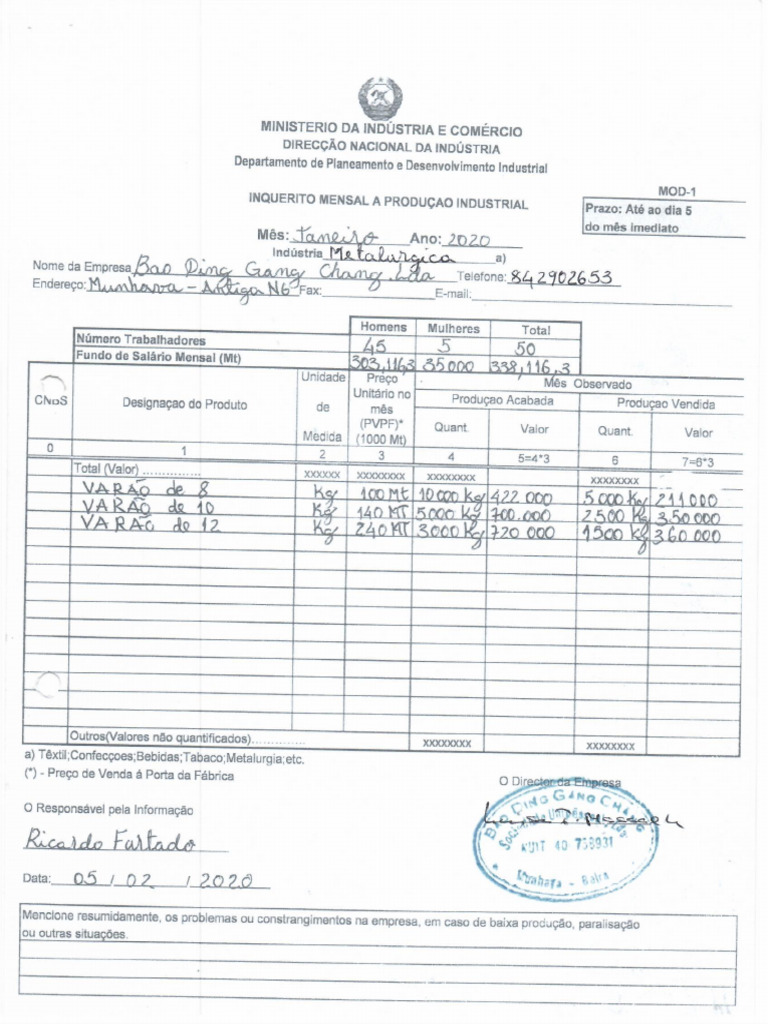 MINISTERIO DA INDÚSTRIA E COMÉRCIO
DIRECÇÃO NACIONAL DA INDÚSTRIA
Departamento de Planeamento e Desenvolvimento Industrial
MOD-1
INQUERITO MENSAL A PRODUÇAO INDUSTRIAL
Prazo: Até ao dia 5
do mês imediato
Mês: Janeiro Ano: 2020
Indústria Metalurgica a)
Nome da Empresa Bao Ding Gang Chang, Lda Telefone: 842902653
Endereço: Munhava - Antiga N6 Fax: E-mail:
Homens Mulheres Total
Número Trabalhadores 45 5 50
Fundo de Salário Mensal (Mt) 303,116,3 35000 338,116,3
CNBS Designaçao do Produto Unidade de Medida Preço Unitário no mês (PVPF)* (1000 Mt) Mês Observado
Produçao Acabada Produçao Vendida
Quant. Valor Quant. Valor
0 1 2 3 4 5=4*3 6 7=6*3
Total (Valor) ............... xxxxxx xxxxxxxx xxxxxxxx xxxxxxxx
VARÃO de 8 Kg 100 Mt 10000 kg 422.000 5000 Kg 211000
VARÃO de 10 Kg 140 MT 5000 kg 700.000 2500 Kg 350000
VARÃO de 12 Kg 240 MT 3000 kg 720000 1500 kg 360000
Outros(Valores não quantificados).............. xxxxxxxx xxxxxxxx
a) Têxtil;Confecçoes;Bebidas;Tabaco;Metalurgia;etc.
(*) - Preço de Venda á Porta da Fábrica
O Director da Empresa
O Responsável pela Informação
BAO DING GANG CHANG
Sociedade Unipessoal
NUIT 40 758931
Munhava - Beira
Ricardo Furtado
Data: 05 / 02 / 2020
Mencione resumidamente, os problemas ou constrangimentos na empresa, em caso de baixa produção, paralisação
ou outras situações.